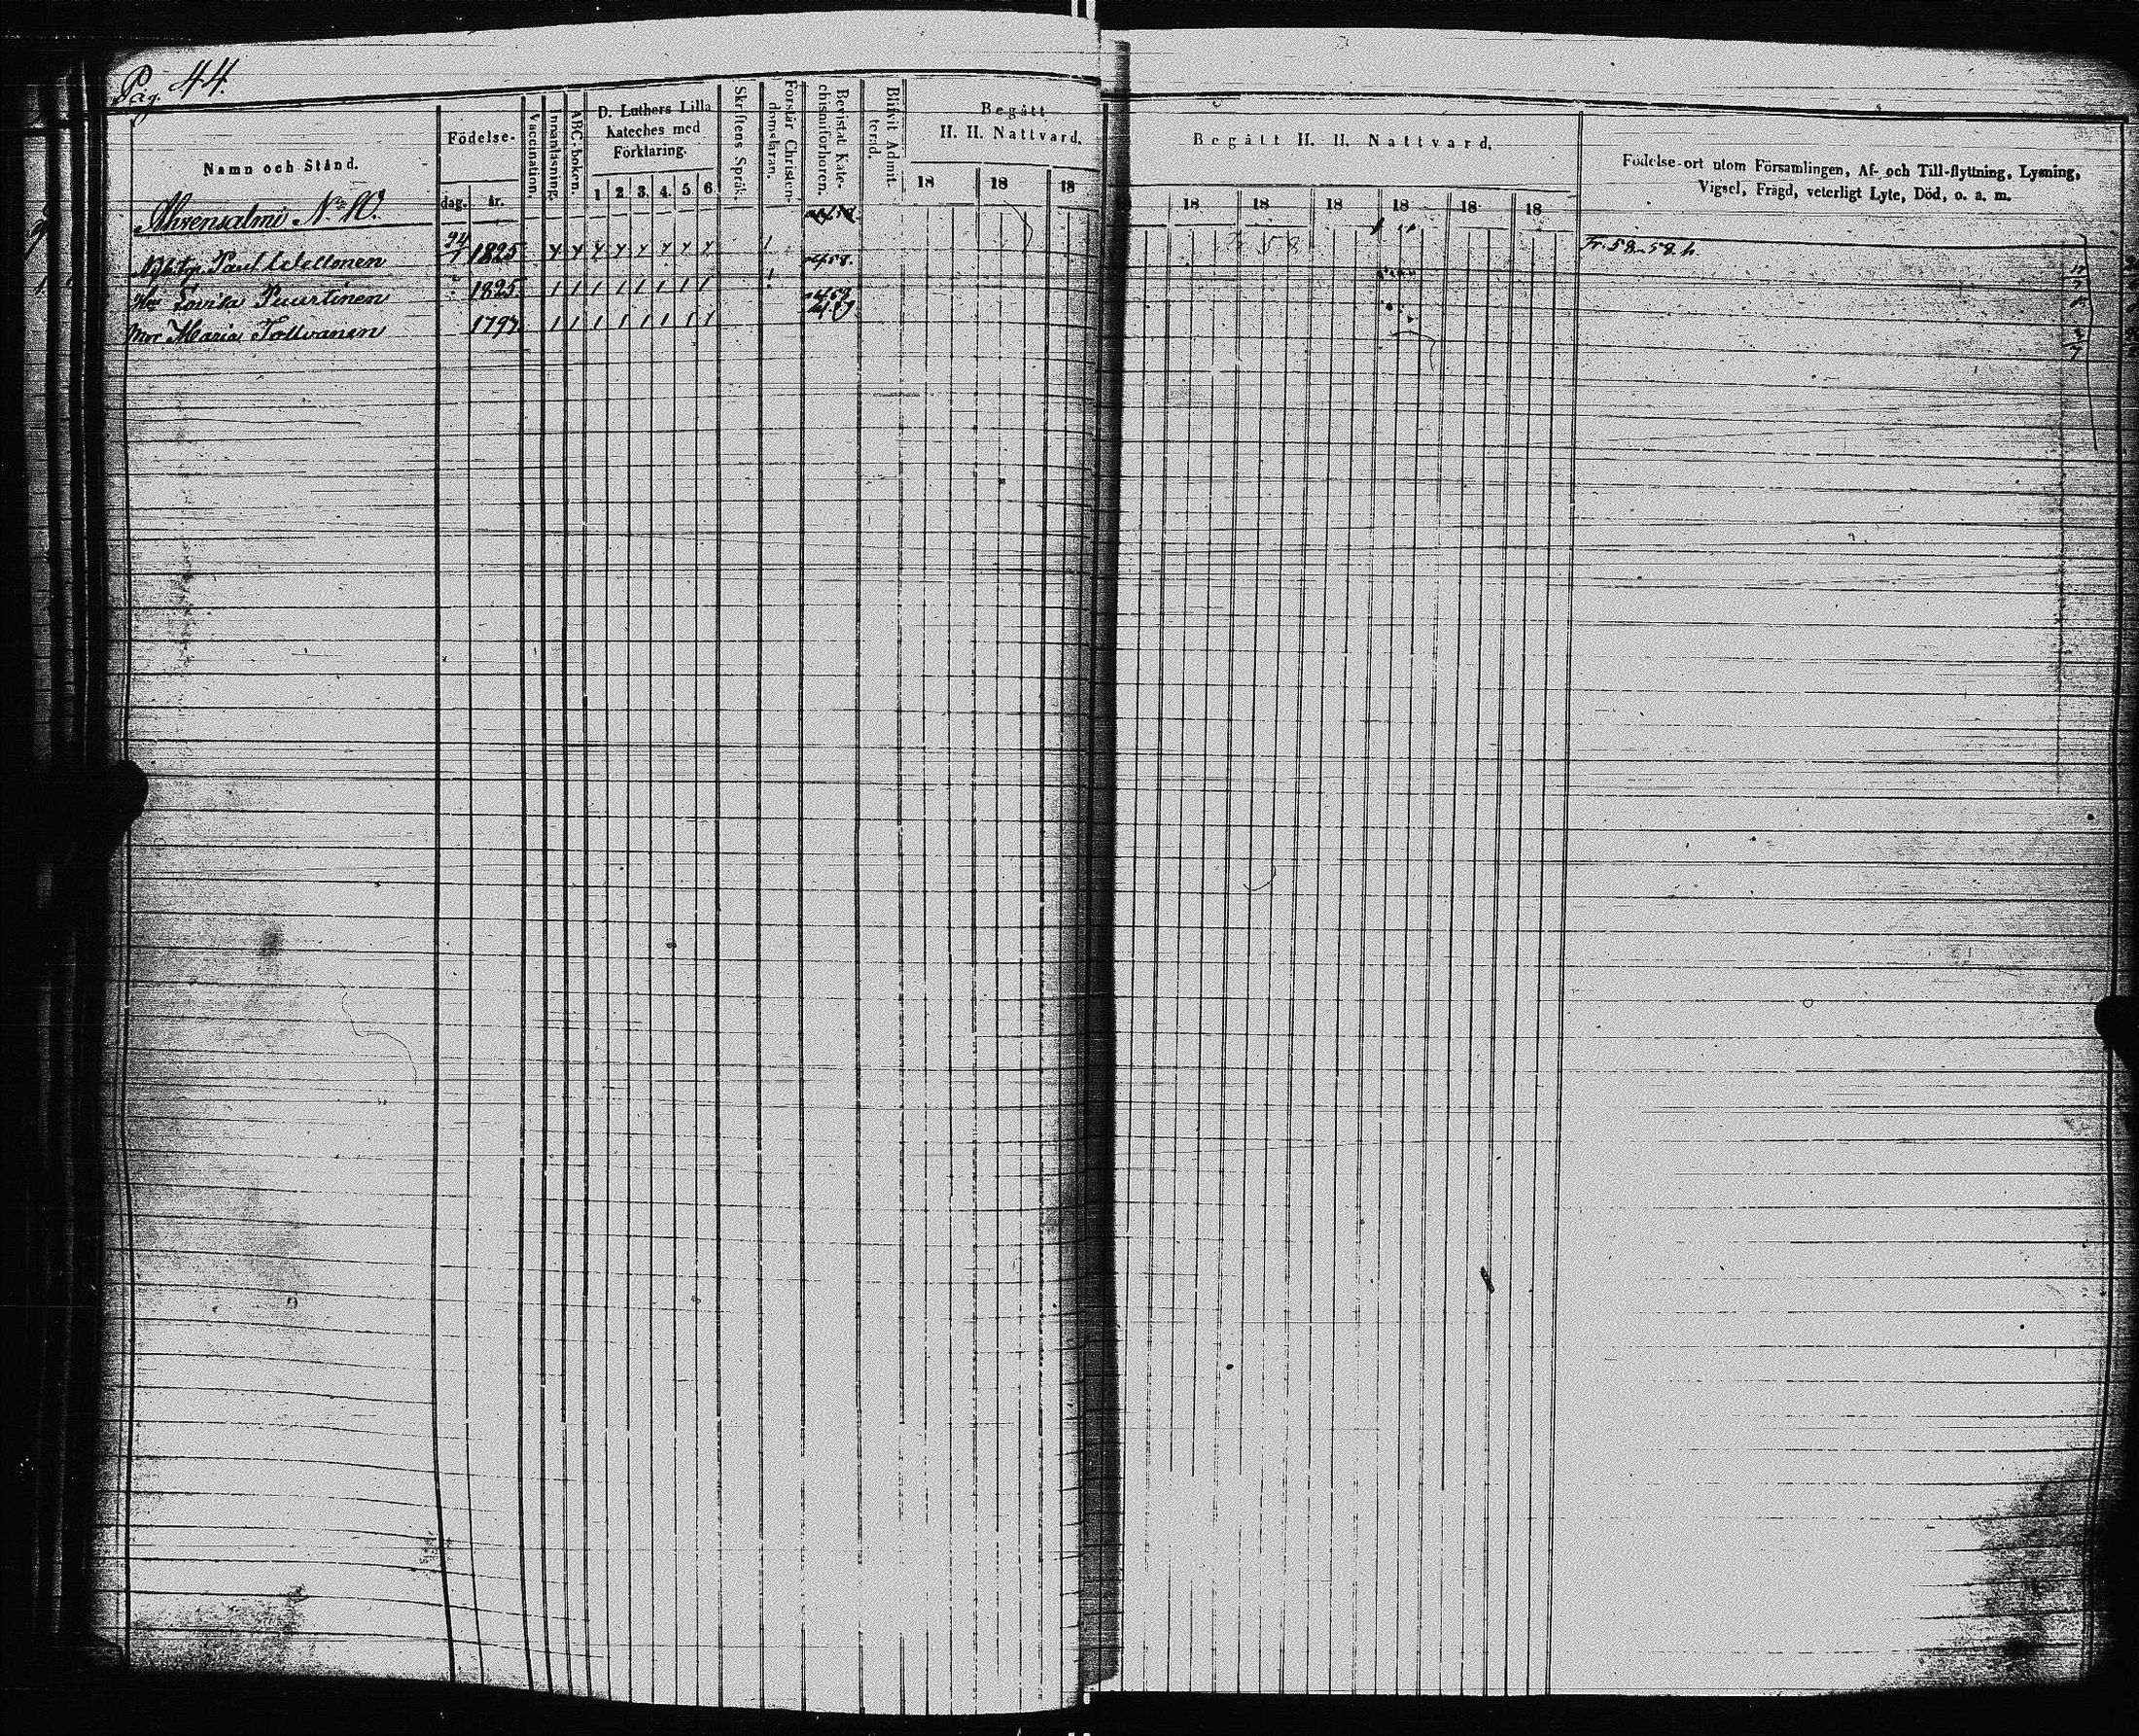 Pag. 44.
Namn och Stånd.
Födelse-
dag.
år.
Vaccination.
Innanläsning.
ABC-boken.
D. Luthers Lilla
Kateches med
Förklaring.
1 2 3. 4. 5 6
Skriftens Språk.
Förstår Christen-
domsläran.
Bevistat Kate-
chismiförhören.
Blifvit Admit-
terad.
Begått
H. H. Nattvard.
18 18 18
Begått H. H. Nattvard.
18 18 18 18 18 18
Födelse-ort utom Församlingen, Af- och Till-flyttning, Lysning,
Vigsel, Frägd, veterligt Lyte, Död, o. a. m.
Ahvensalmi
Paul 1825
Fr. 58
Lovisa Puurtinen 1825
Mor Maria Tolvanen